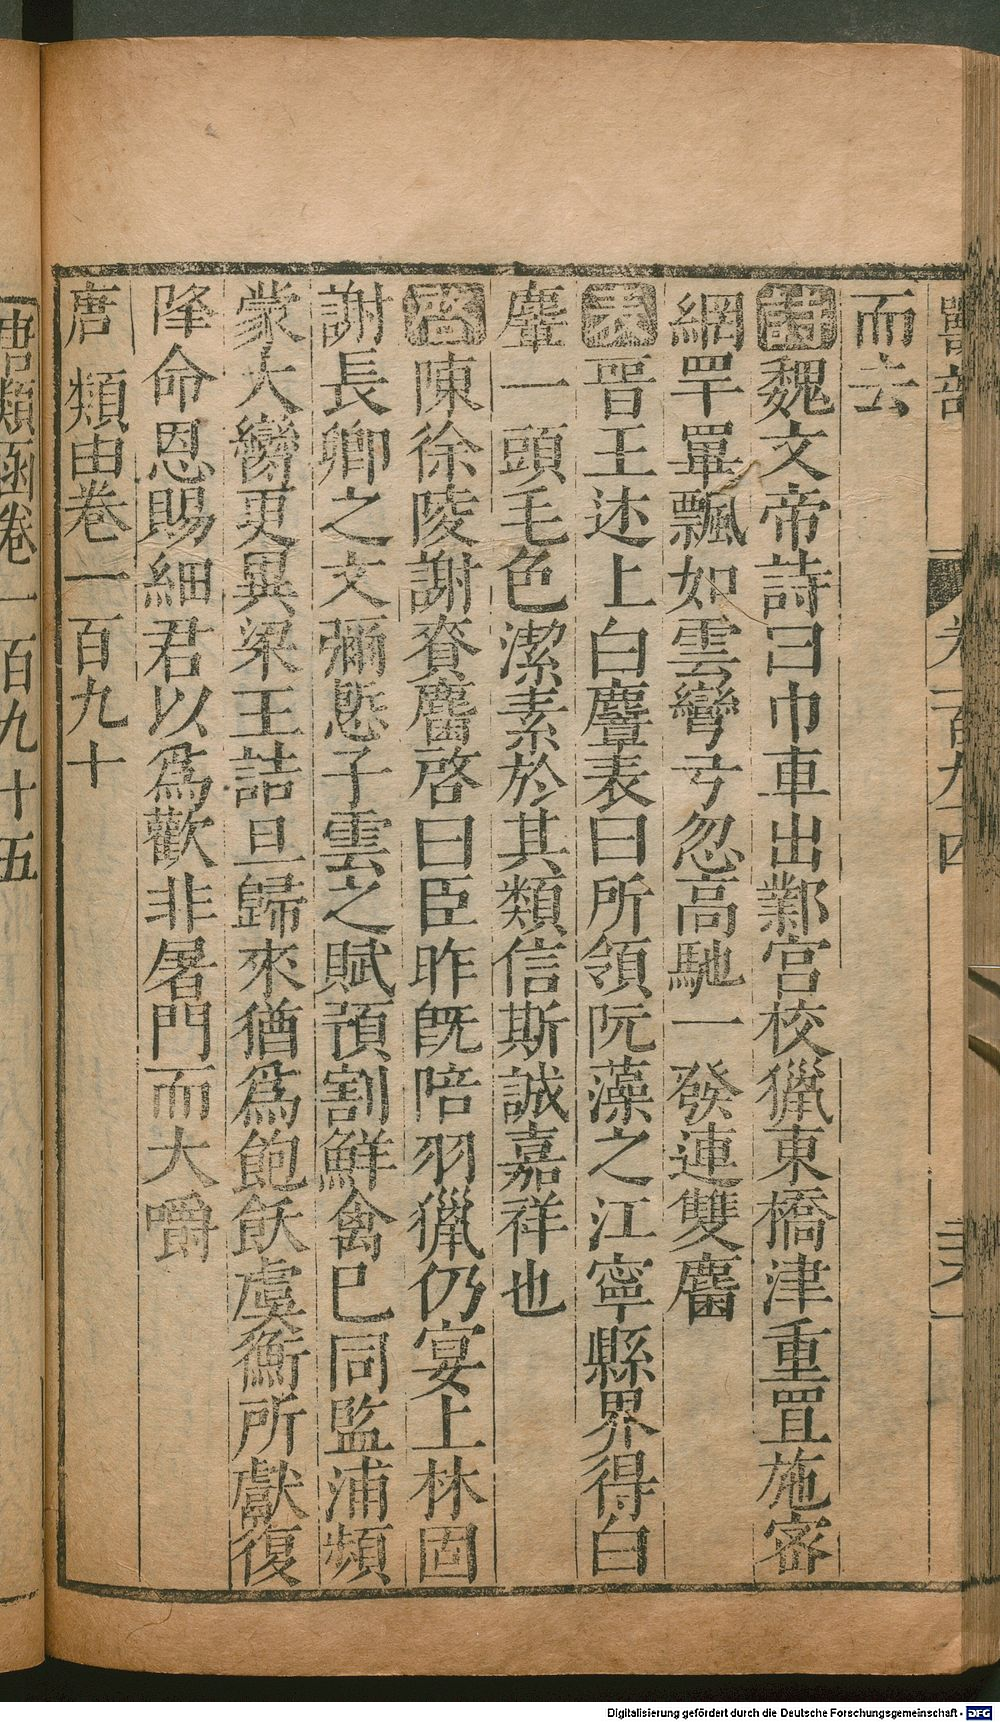 獸部 卷一百九十四 三六
而去
詩魏文帝詩曰巾車出鄴宫校獵東橋津重罝施密
網罕罼飄如雲彎弓忽高馳一發連雙麏
表晉王述上白麞表曰所領阮藻之江寧縣界得白
麞一頭毛色潔素於其類信斯誠嘉祥也
啓陳徐陵謝賚麞啓曰臣昨旣陪羽獵仍宴上林固
謝長卿之文彌慙子雲之賦預割鮮禽已同監浦頻
蒙大臠更異梁王詰旦歸來猶爲飽飫虞衡所獻復
降命恩賜細君以爲歡非屠門而大嚼
唐類由卷一百九十
唐類函卷一百九十五
Digitalisierung gefördert durch die Deutsche Forschungsgemeinschaft - DFG